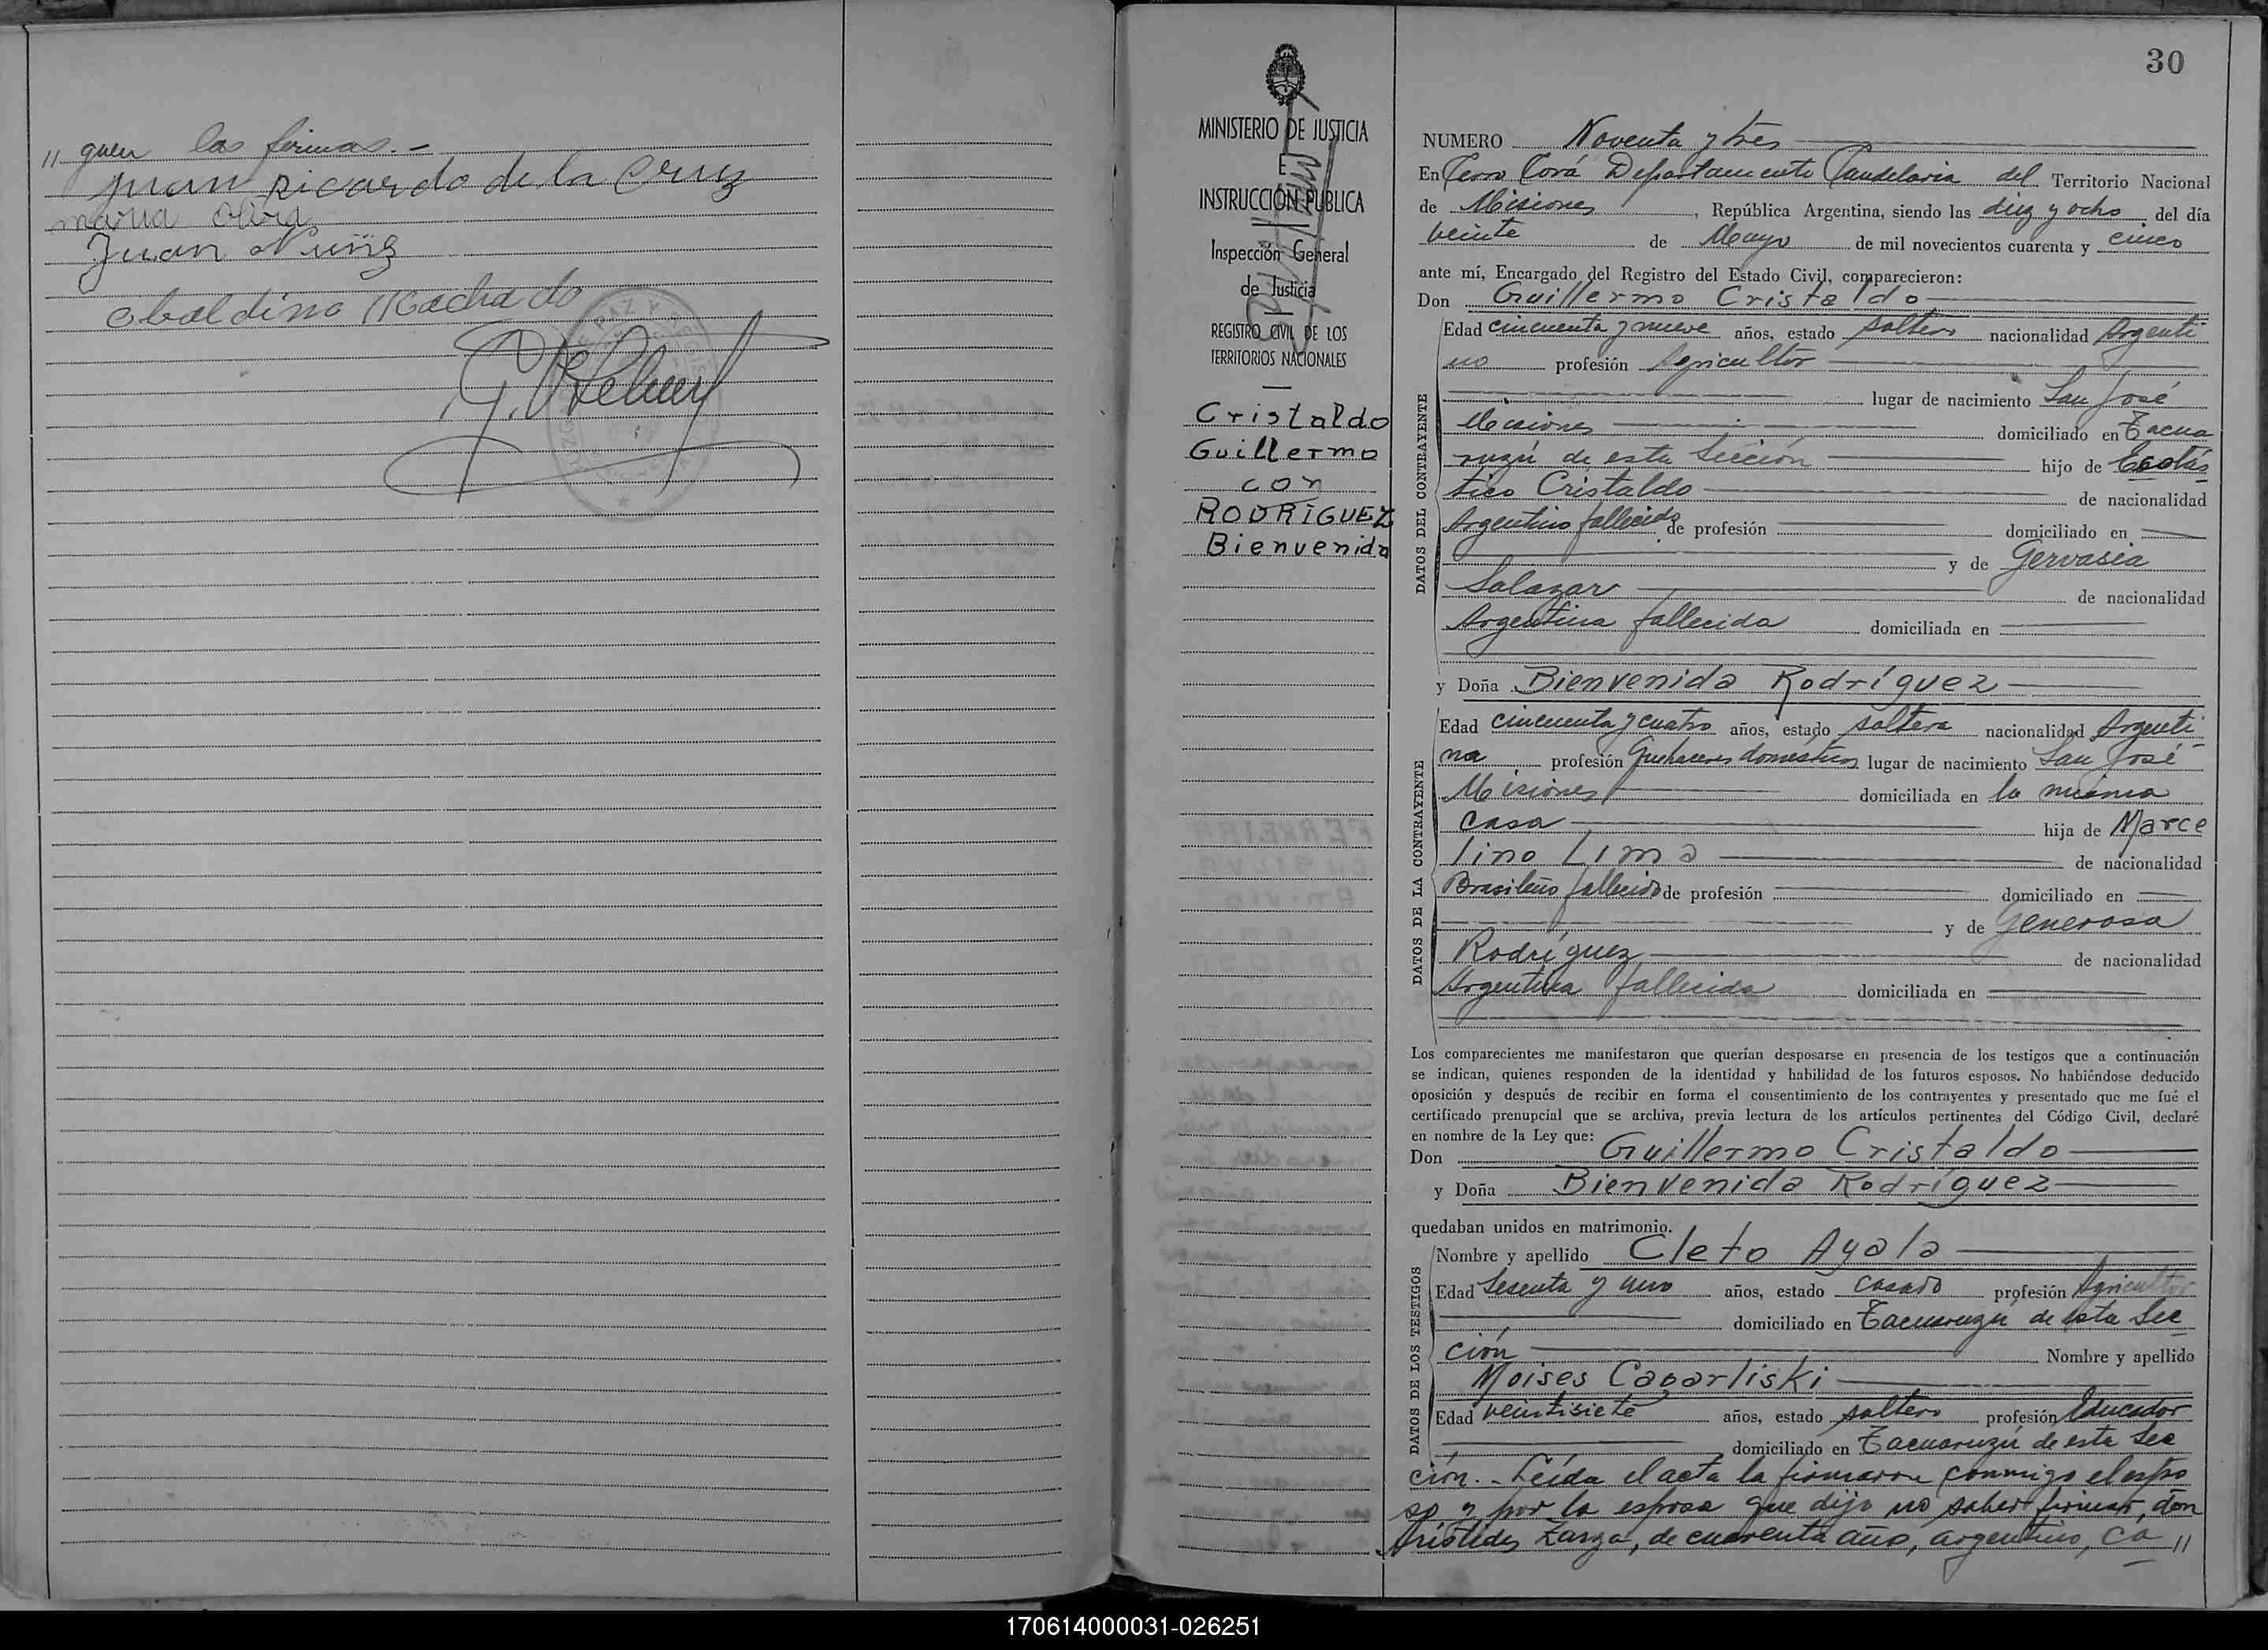 " guen las firmas.-
Juan Ricardo de la Cruz
maria Oliva
Juan Nuñz
Obaldino Machado
30
MINISTERIO DE JUSTICIA
E
INSTRUCCIÓN PUBLICA
Inspección General
de Justicia
REGISTRO CIVIL DE LOS
TERRITORIOS NACIONALES
Cristaldo
Guillermo
con
RODRÍGUEZ
Bienvenida
NUMERO Noventa y tres
En Cerro Corá Departamento Candelaria del Territorio Nacional
de Misiones, República Argentina, siendo las diez y ocho del día
veinte de Mayo de mil novecientos cuarenta y cinco
ante mí, Encargado del Registro del Estado Civil, comparecieron:
Don Guillermo Cristaldo
DATOS DEL CONTRAYENTE
Edad cincuenta y nueve años, estado soltero nacionalidad Argenti
no profesión Agricultor
lugar de nacimiento San José
Misiones domiciliado en Tacua
ruzú de esta Sección hijo de Escolás
tico Cristaldo de nacionalidad
Argentino fallecido de profesión domiciliado en
y de Gervasia
Salazar de nacionalidad
Argentina fallecida domiciliada en
y Doña Bienvenida Rodríguez
DATOS DE LA CONTRAYENTE
Edad cincuenta y cuatro años, estado soltera nacionalidad Argenti
na profesión Quehaceres domésticos lugar de nacimiento San José
Misiones domiciliada en la misma
casa hija de Marce
lino Lima de nacionalidad
Brasileño fallecido de profesión domiciliado en
y de Generosa
Rodríguez de nacionalidad
Argentina fallecida domiciliada en
Los comparecientes me manifestaron que querían desposarse en presencia de los testigos que a continuación
se indican, quienes responden de la identidad y habilidad de los futuros esposos. No habiéndose deducido
oposición y después de recibir en forma el consentimiento de los contrayentes y presentado que me fué el
certificado prenupcial que se archiva, previa lectura de los artículos pertinentes del Código Civil, declaré
en nombre de la Ley que:
Don Guillermo Cristaldo
y Doña Bienvenida Rodríguez
quedaban unidos en matrimonio.
DATOS DE LOS TESTIGOS
Nombre y apellido Cleto Ayala
Edad Sesenta y uno años, estado casado profesión Agricultor
domiciliado en Tacuaruzú de esta Sec
ción Nombre y apellido
Moises Caparliski
Edad veintisiete años, estado soltero profesión Educador
domiciliado en Tacuaruzú de esta Sec
ción.- Leída el acta la firmaron conmigo el espo
so y por la esposa que dijo no saber firmar, don
Arístides Zarza, de cuarenta años, argentino, ca "
170614000031-026251